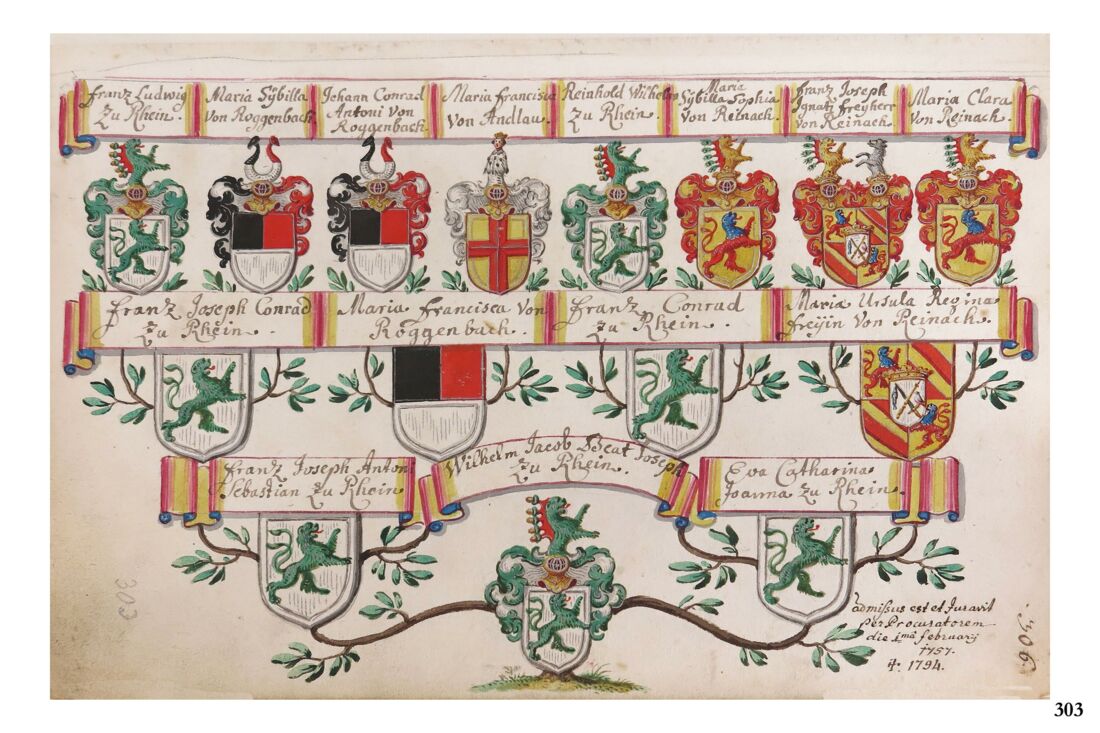 Franz Ludwig
Zu Rhein.
Maria Sÿbilla
Von Roggenbach.
Johann Conrad
Antoni Von
Roggenbach.
Maria Francisca
Von Andlau.
Reinhold Wilhelm
Zu Rhein.
Maria
Sÿbilla Sophia
Von Reinach.
Franz Joseph
Ignatz Freÿherr
Von Reinach.
Maria Clara
Von Reinach.
Franz Joseph Conrad
Zu Rhein.
Maria Francisca Von
Roggenbach.
Franz Conrad
zu Rhein.
Maria Ursula Regina
Freÿin Von Reinach.
Franz Joseph Antoni
Sebastian Zu Rhein.
Wilhelm Jacob Beat Joseph
Zu Rhein.
Eva Catharina
Joanna Zu Rhein.
admissus est et Juravit
per Procuratorem
die 1mâ februarij
1757.
†. 1794.
303
306.
303